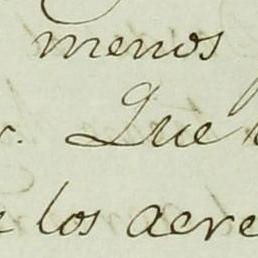 menos
Que
los acre